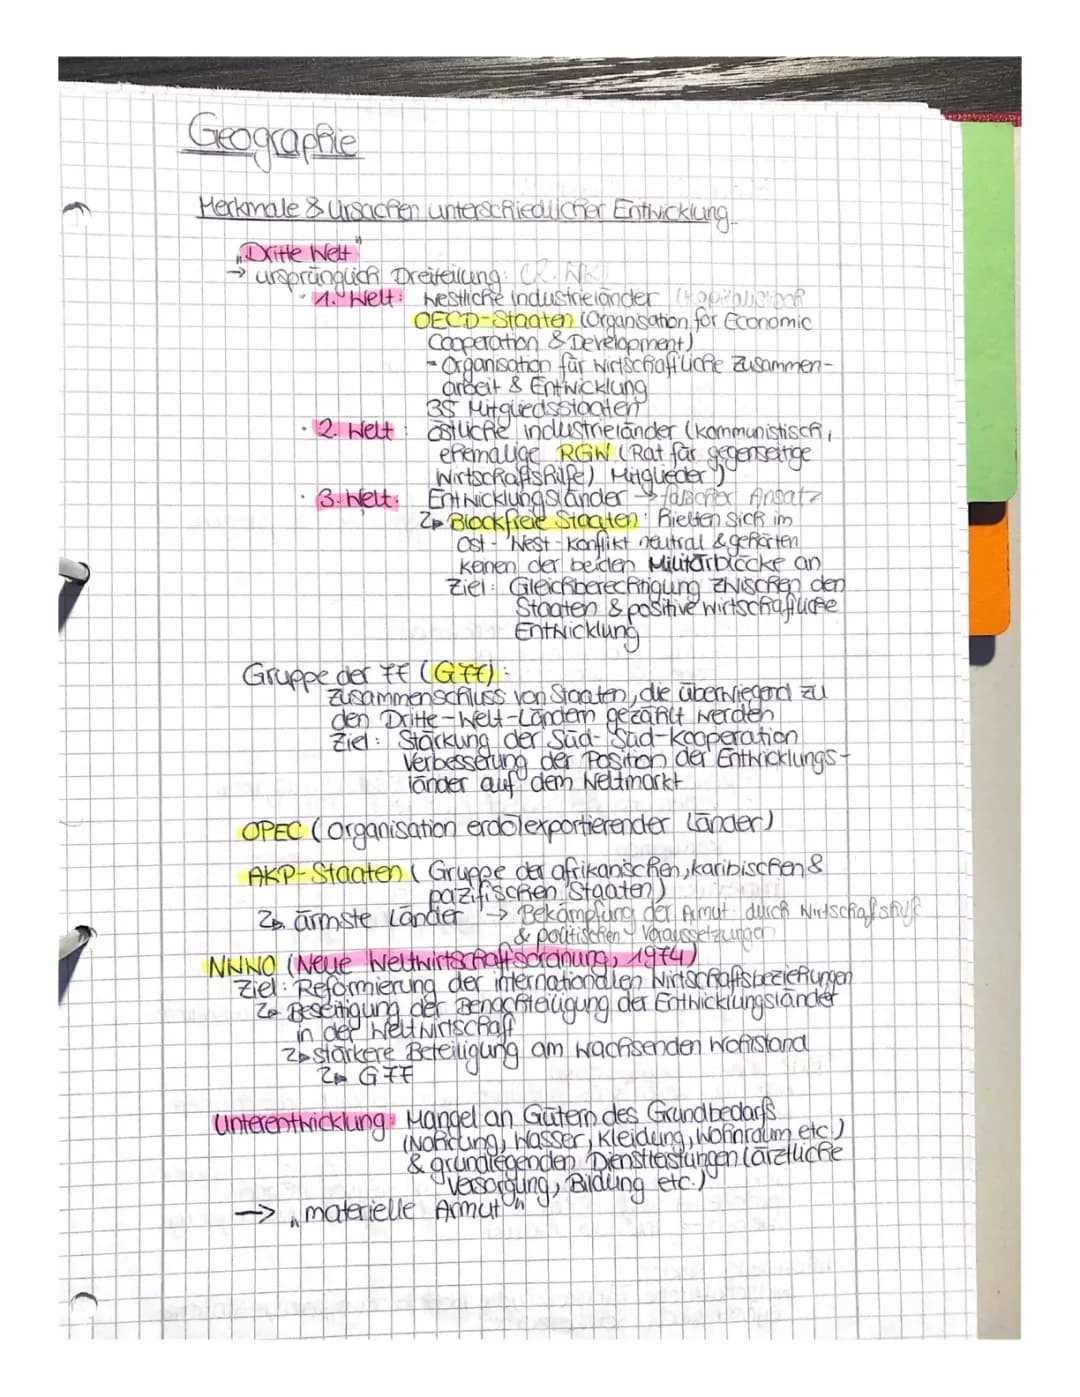 Geographie
Merkmale & Ursachen unterschiedlicher Entwicklung
"Dritte Welt"
→ ursprünglich Dreiteilung: (2. WK)
· 1. Welt: westliche Industrieländer (kapitalistisch
OECD-Staaten (Organisation for Economic
Cooperation & Development)
- Organisation für wirtschaftliche Zusammen-
arbeit & Entwicklung
35 Mitgliedsstaaten
· 2. Welt: östliche Industrieländer (kommunistisch,
ehemalige RGW (Rat für gegenseitige
Wirtschaftshilfe) Mitglieder)
· 3. Welt: Entwicklungsländer → falscher Ansatz
↳ Blockfreie Staaten: hielten sich im
Ost-West-Konflikt neutral & gehörten
keinen der beiden Militärblöcke an
Ziel: Gleichberechtigung zwischen den
Staaten & positive wirtschaftliche
Entwicklung
Gruppe der 77 (G77):
Zusammenschluss von Staaten, die überwiegend zu
den Dritte-Welt-Ländern gezählt werden
Ziel: Stärkung der Süd-Süd-Kooperation
Verbesserung der Position der Entwicklungs-
länder auf dem Weltmarkt
OPEC (Organisation erdölexportierender Länder)
AKP-Staaten (Gruppe der afrikanischen, karibischen &
pazifischen Staaten)
↳ ärmste Länder → Bekämpfung der Armut durch Wirtschaftshilfe
& politischen Voraussetzungen
NWWO (Neue Weltwirtschaftsordnung, 1974)
Ziel: Reformierung der internationalen Wirtschaftsbeziehungen
↳ Beseitigung der Benachteiligung der Entwicklungsländer
in der Weltwirtschaft
↳ stärkere Beteiligung am wachsenden Wohlstand
↳ G77
Unterentwicklung: Mangel an Gütern des Grundbedarfs
(Nahrung, Wasser, Kleidung, Wohnraum etc.)
& grundlegenden Dienstleistungen (ärztliche
Versorgung, Bildung etc.)
→ "materielle Armut"